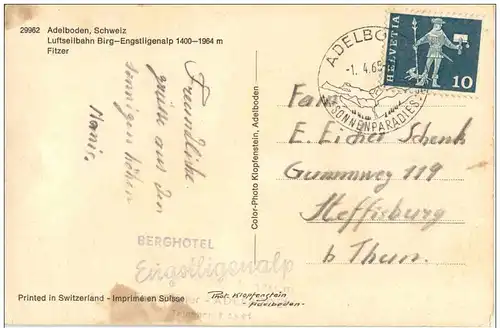 29962 Adelboden, Schweiz
Luftseilbahn Birg–Engstligenalp 1400–1964 m
Fitzer
Freundliche
grüße aus den
sonnigen höhen
BERGHOTEL
Engstligenalp
Printed in Switzerland - Imprimé en Suisse
Color-Photo Klopfenstein, Adelboden
Phot. Klopfenstein
Adelboden
ADELBO
-1. 4.69
SONNENPARADIES
HELVETIA
10
Fam.
E. Eicher Schenk
Gummweg 119
Steffisburg
b Thun.